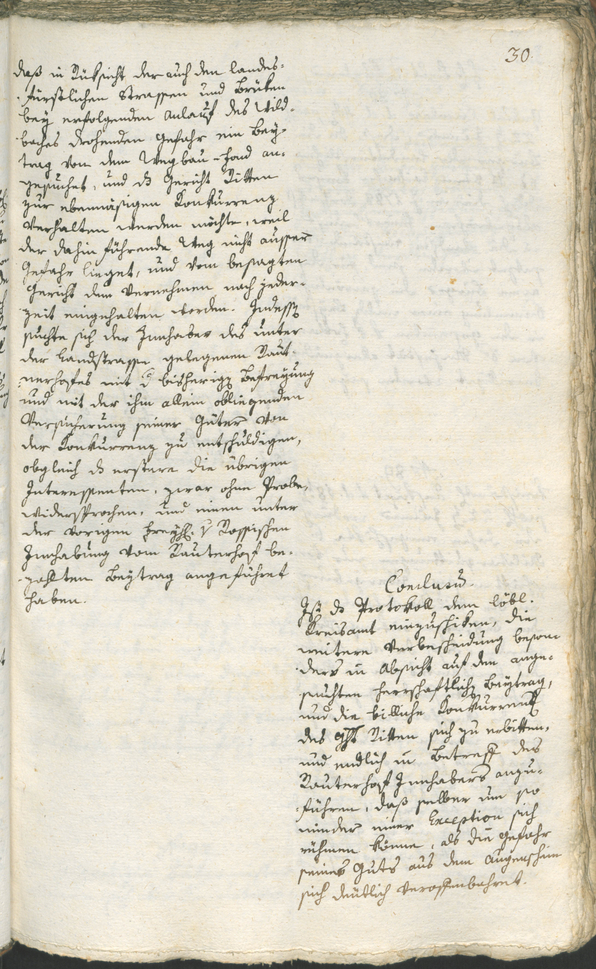 30.
daß in Rüksicht der auch den landes-
fürstlichen Strassen und Brüken
bey erfolgenden Anlauf des Wild-
baches drohenden Gefahr ein Bey-
trag von dem Wegbau-Fond an-
gesuchet, und ds Gericht Ritten
zur ebenmäßigen Konkurrenz
verhalten werden möchte, weil
der dahin führende Weg nicht ausser
Gefahr lieget, und vom besagten
Gericht dem Vernehmen nach jeder-
zeit eingehalten worden. Indessen
suchte sich der Innhaber des unter
der Landstrasse gelegenen Raut-
nerhofes mit d bisherigen Befreyung
und mit der ihm allein obliegenden
Versicherung seiner Güter von
der Konkurrenz zu entschuldigen,
obgleich ds erstere die übrigen
Interessenten, zwar ohne Probe
widersprochen, und einen unter
der vorigen Freyhl. v Rossischen
Innhabung vom Rauterhof be-
zahlten Beytrag angeführet
haben.
Conclusum.
Ist ds Protokoll dem löbl.
Kreisamt einzuschiken, die
weitere Verbescheidung beson-
ders in Absicht auf den ange-
suchten herrschaftlichen Beytrag,
und die billiche Konkurrenz
des Ghts Ritten sich zu erbitten,
und endlich in Betreff des
Rauterhof Innhabers anzu-
führen, daß selber um so
minder einer Exception sich
rühmen könne, als die Gefahr
seines Guts aus dem Augenschein
sich deutlich veroffenbahret.